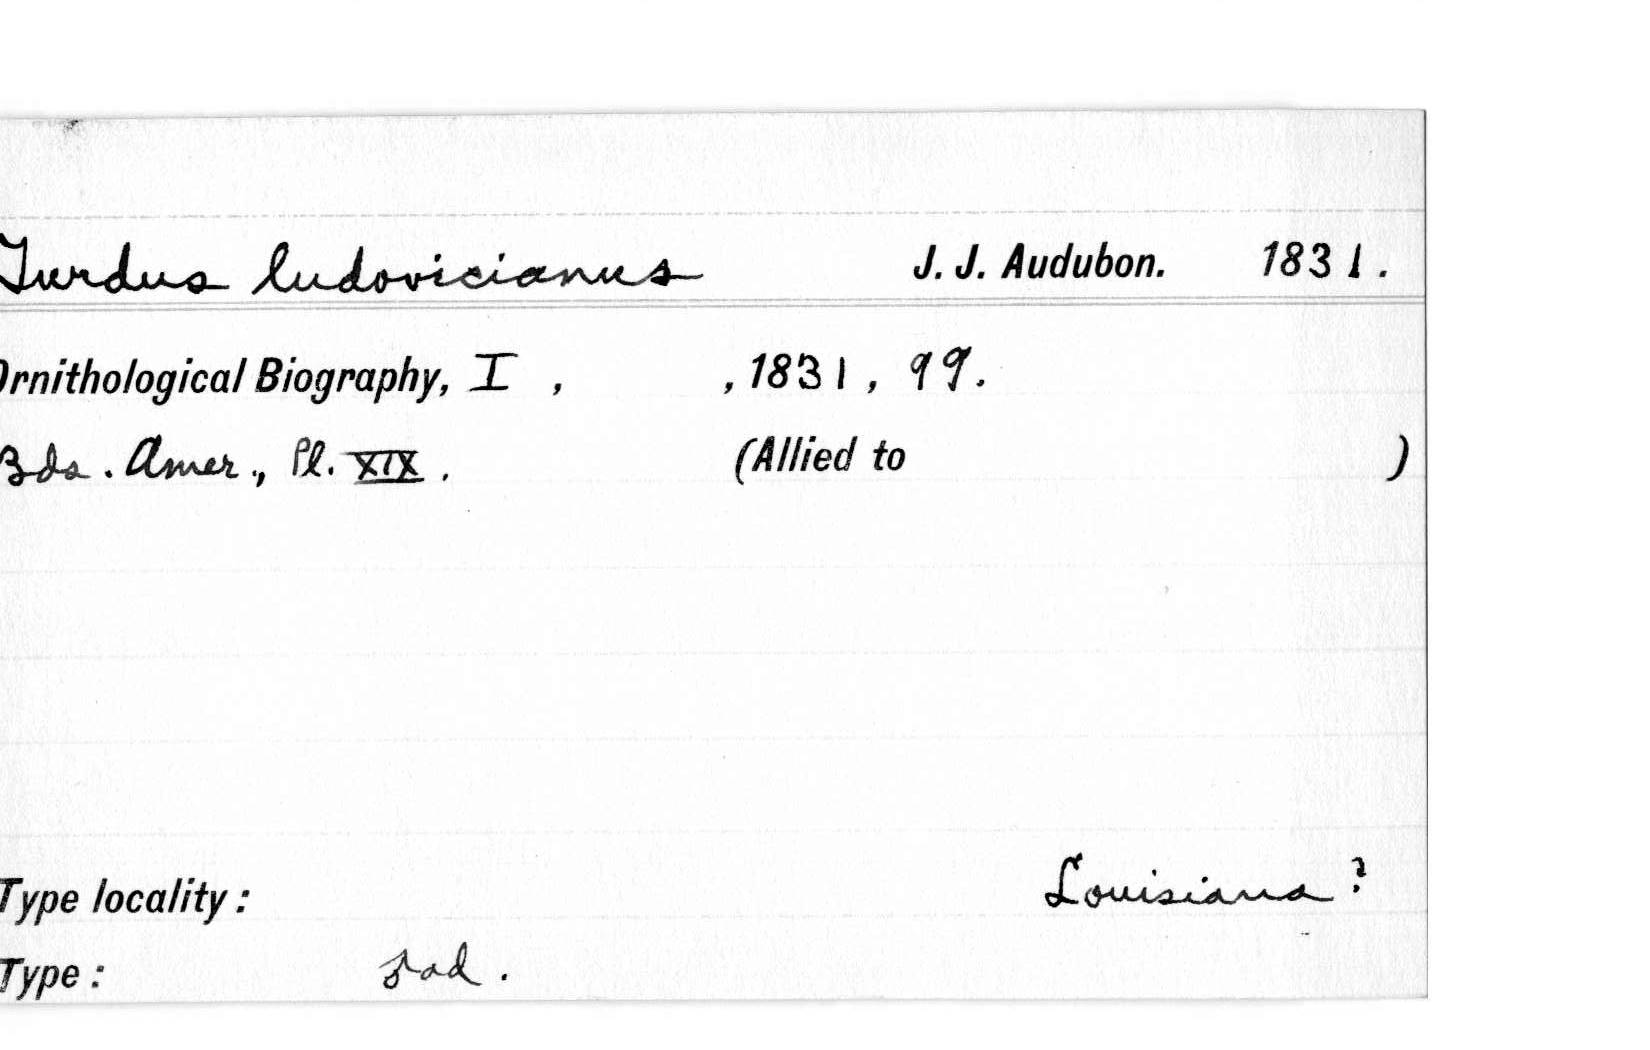 Turdus ludovicianus J. J. Audubon. 1831.
Ornithological Biography, I , , 1831, 99.
Bds. Amer., Pl. XIX. (Allied to )
Type locality: Louisiana?
Type: ad.